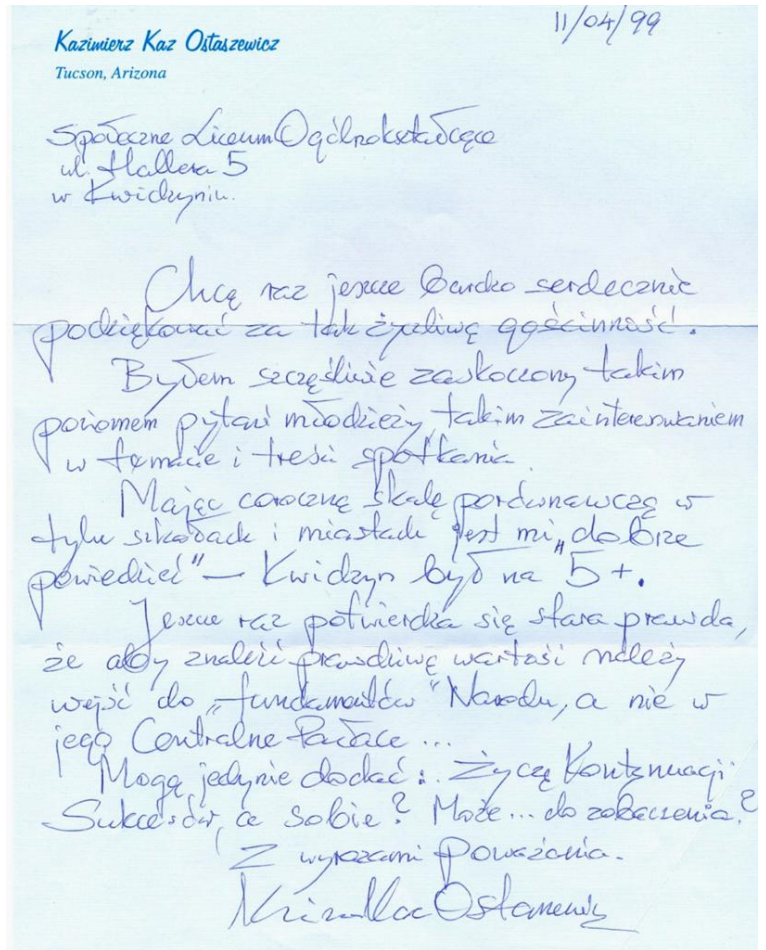 11/04/99
Kazimierz Kaz Ostaszewicz
Tucson, Arizona
Społeczne Liceum Ogólnokształcące
ul. Hallera 5
w Kwidzyniu.
Chcę raz jeszcze bardzo serdecznie
podziękować za tak życzliwą gościnność.
Byłem szczęśliwie zaskoczony takim
poziomem pytań młodzieży, takim zainteresowaniem
w temacie i treści spotkania.
Mając coroczną skalę porównawczą w
tylu szkołach i miastach jest mi „dobrze
powiedzieć" – Kwidzyn był na 5+.
Jeszcze raz potwierdza się stara prawda,
że aby znaleźć prawdziwe wartości należy
wejść do „fundamentów" Narodu, a nie w
jego Centralne Pałace ...
Mogę jedynie dodać: Życzę Kontynuacji
Sukcesów, a sobie? Może... do zobaczenia?
Z wyrazami Poważania.
Kaz Ostaszewicz